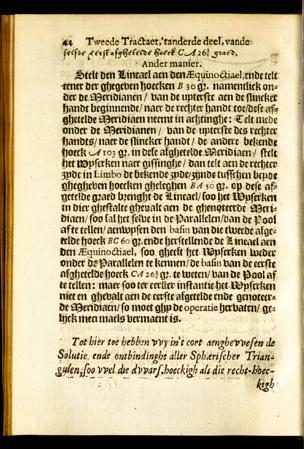 42 Tweede Tractaet, 'tanderde deel, vande
selfde eerst afghetelde hoeck CA 26½ graed.
Ander manier.
Stelt den Lineael aen den Æquinoctiael, ende telt
tener der ghegeven hoecken B 30 gz. namentlick on-
der de Meridianen / van de upterste aen de slincker
handt beginnende / naer de rechter handt toe/dese af-
ghetelde Meridiaen neemt in achtinghe: Telt mede
onder de Meridianen / van de upterste des rechter
handts/ naer de slincker handt / de andere bekende
hoeck A 103 gz. in dese afghetelde Meridiaen / stelt
het Wyserken naer gissinghe / dan telt aen de rechter
zyde in Limbo de bekende zyde/zijnde tusschen beyde
ghegheven hoecken gheleghen BA 50 gz. op dese af-
getelde graed brenght de Lineael / soo het Wyserken
in dier ghestalte ghevalt aen de ghenoteerde Meri-
diaen / soo sal het selve in de Parallelen/van de Pool
af te tellen/ aenwysen den basin van die tweede afge-
telde hoeck BC 60 gz. ende herstellende de Lineael aen
den Æquinoctiael, soo gheeft het Wyserken weder
onder de Parallelen te kennen/ de basin van de eerste
afghetelde hoeck CA 26½ gz. te weten/ van de Pool af
te tellen: maer soo ter eerster instantie het Wyserken
niet en ghevalt aen de eerste afgetelde ende genoteer-
de Meridiaen / so moet ghy de operatie hervaten/ ge-
lyck meermaels vermaent is.
Tot hier toe hebben vvy in't cort aenghevvesen de
Solutie, ende ontbindinghe aller Sphærischer Trian-
gulen, soo vvel die dvvars-hoeckigh als die recht-hoec-
kigh